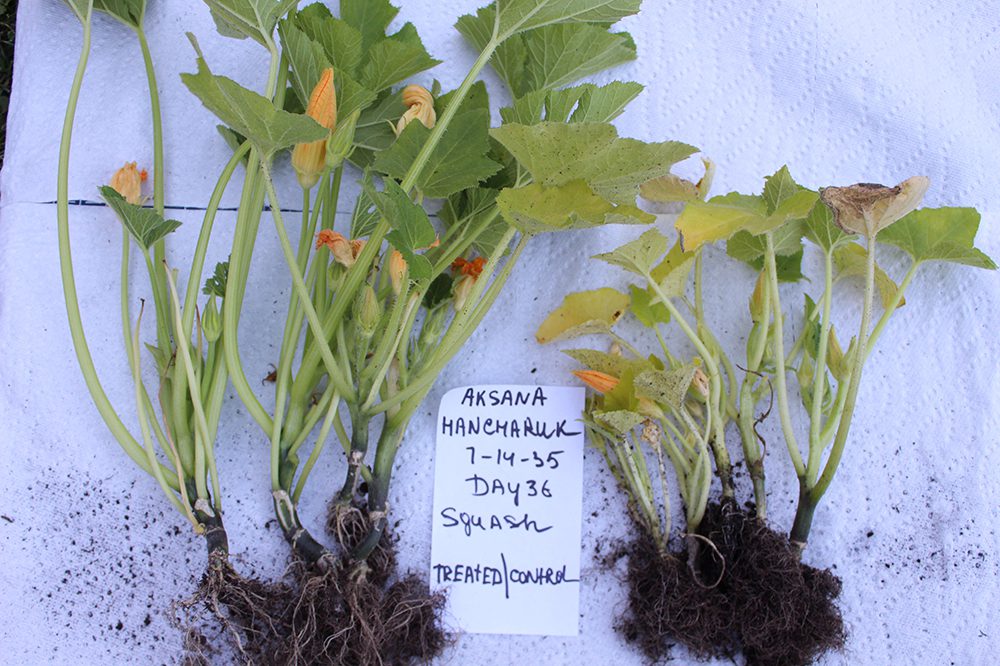 AKSANA
HANCHARUK
7-14-35
DAY 36
SQUASH
TREATED/CONTROL